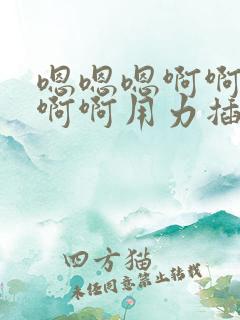 嗯嗯嗯啊啊
啊啊用力插
四方猫
未经同意禁止转载